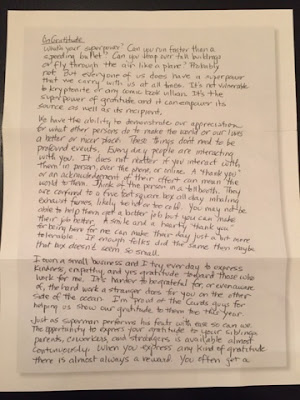 On Gratitude
What's your superpower? Can you run faster than a
speeding bullet? Can you leap over tall buildings
or fly through the air like a plane? Probably
not. But everyone of us does have a superpower
that we carry with us at all times. It's not vulnerable
to kryptonite or any comic book villain. It's the
superpower of gratitude and it can empower its
source as well as its recipient.
We have the ability to demonstrate our appreciation
for what other persons do to make the world or our lives
a better or nicer place. These things don't need to be
profound events. Every day people are interacting
with you. It does not matter if you interact with
them in person, over the phone, or online. A "thank you"
or an acknowledgement of their effect can mean the
world to them. Think of the person in a toll booth. They
are confined to a five foot square box all day inhaling
exhaust fumes, likely to hot or too cold. You may not be
able to help them get a better job but you can make
their job better. A smile and a hearty "thank you
for being here for me can make their day just a bit more
tolerable. If enough folks did the same then maybe
that box doesn't seem so small.
I own a small business and I try every day to express
kindness, empathy, and yes gratitude toward those who
work for me. It's harder to be grateful for, or even aware
of, the hard work a stranger does for you on the other
side of the ocean. I'm proud of the guys for
helping us show our gratitude to them too this year
Just as superman performs his feats with ease so can we.
The opportunity to express your gratitude to your siblings
parents, coworkers, and strangers is available almost
continuously. When you express any kind of gratitude
there is almost always a reward. You often get a